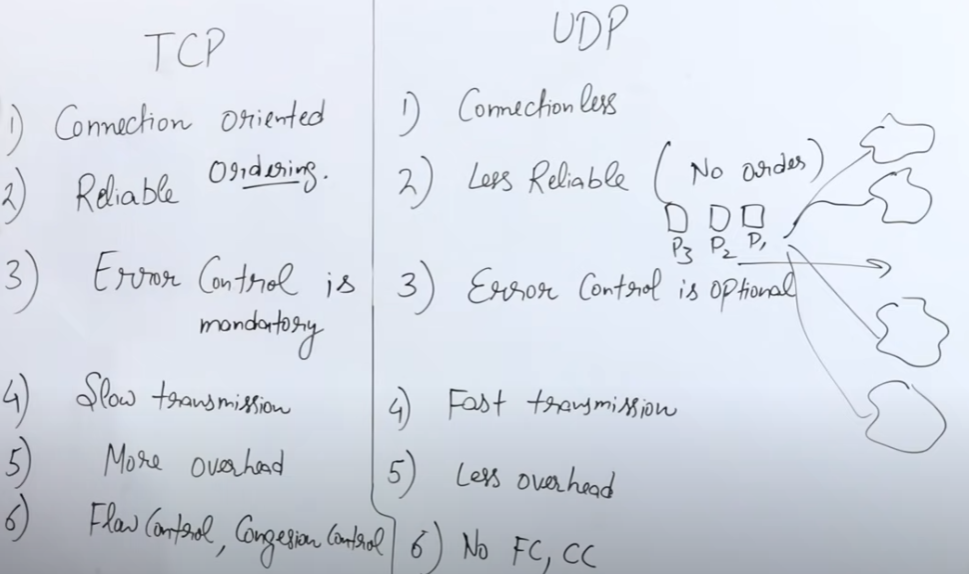 TCP
1) Connection oriented
2) Reliable Ordering.
3) Error Control is
mandatory
4) Slow transmission
5) More overhead
6) Flow Control, Congesion Control
UDP
1) Connectionless
2) Less Reliable (No order)
P3 P2 P1
3) Error Control is optional
4) Fast transmission
5) Less overhead
6) No FC, CC